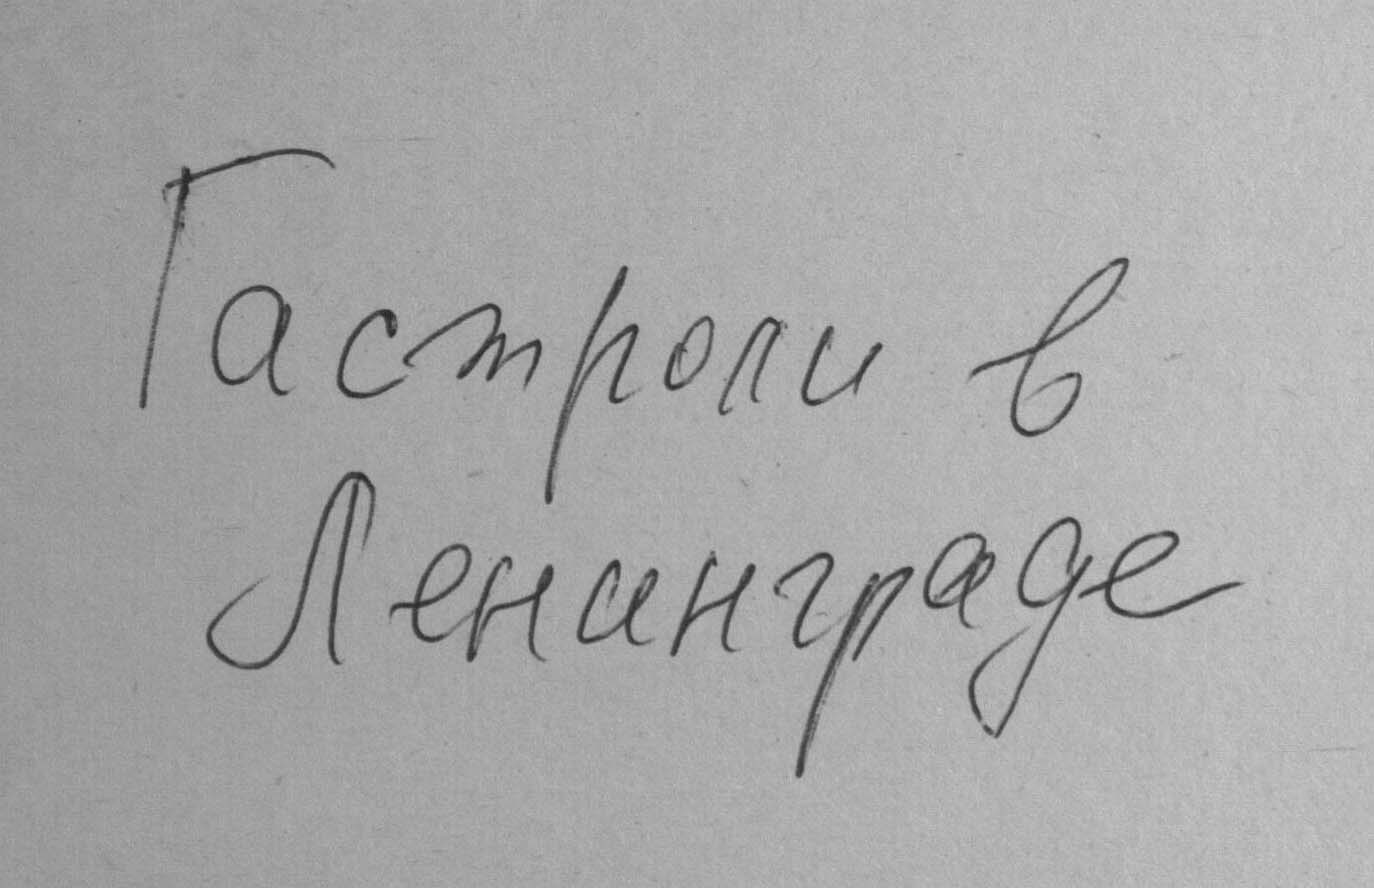 Гастроли в
Ленинграде